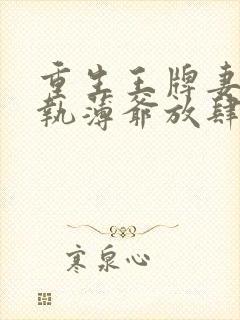 重生王牌妻
執薄爺放肆
寒泉心